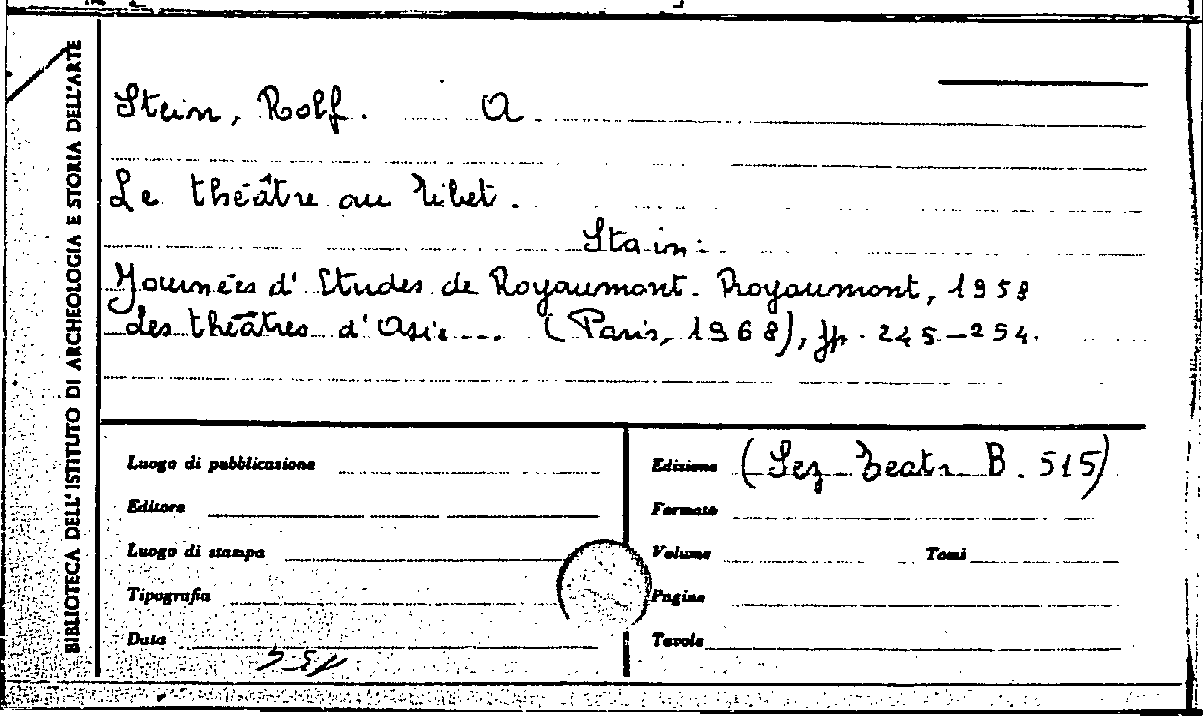 BIBLIOTECA DELL'ISTITUTO DI ARCHEOLOGIA E STORIA DELL'ARTE
Stein, Rolf. A.
Le théâtre au Tibet.
Sta in:
Journées d'Etudes de Royaumont. Royaumont, 1958
Les théâtres d'Asie... (Paris, 1968), pp. 245-254.
Luogo di pubblicazione
Editore
Luogo di stampa
Tipografia
Data
Edizione (Sez. Teatr. B. 515)
Formato
Volume Tomi
Pagine
Tavole